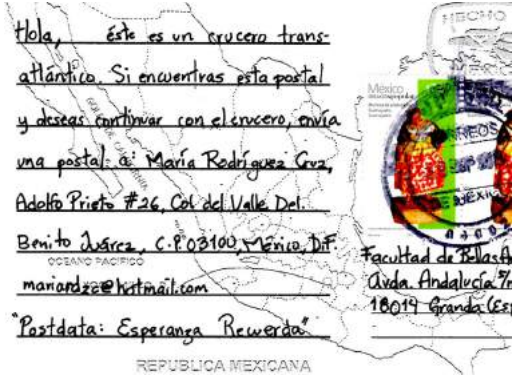 Hola, éste es un crucero trans-
atlántico. Si encuentras esta postal
y deseas continuar con el crucero, envía
una postal: a: María Rodríguez Cruz,
Adolfo Prieto #26, Col del Valle Del.
Benito Juárez, C.P. 03100, México, D.F.
OCEANO PACIFICO
"Postdata: Esperanza Recuerda"
REPUBLICA MEXICANA
HECHO
México
Facultad de Bellas
Avda. Andalucía s/n
18014 Granda (Esp